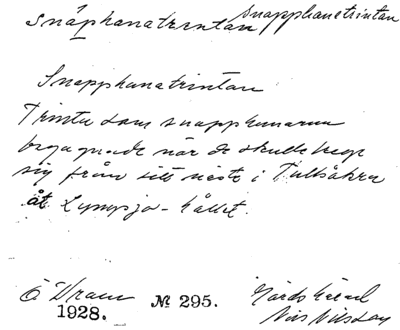 snåphanatrintan snapphanetrintan
Snapphanatrintan
Trinta som snapphanarna
begagnade när de skulle bege
sig från sitt näste i Tullsåkra
åt Lyngsjö-hållet.
Ö Vram № 295. Gärds härad
1928. Nils Nilsson